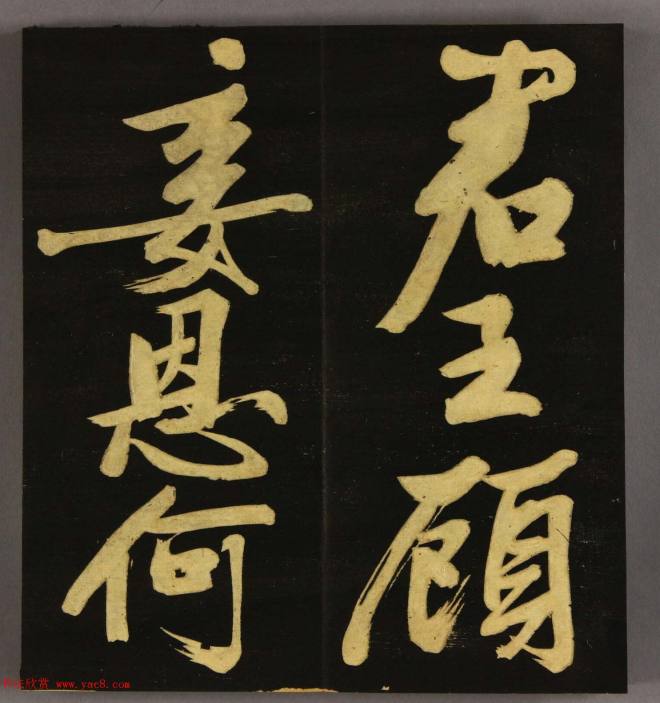 君王顧
妾恩何
欣赏 www.yac8.com